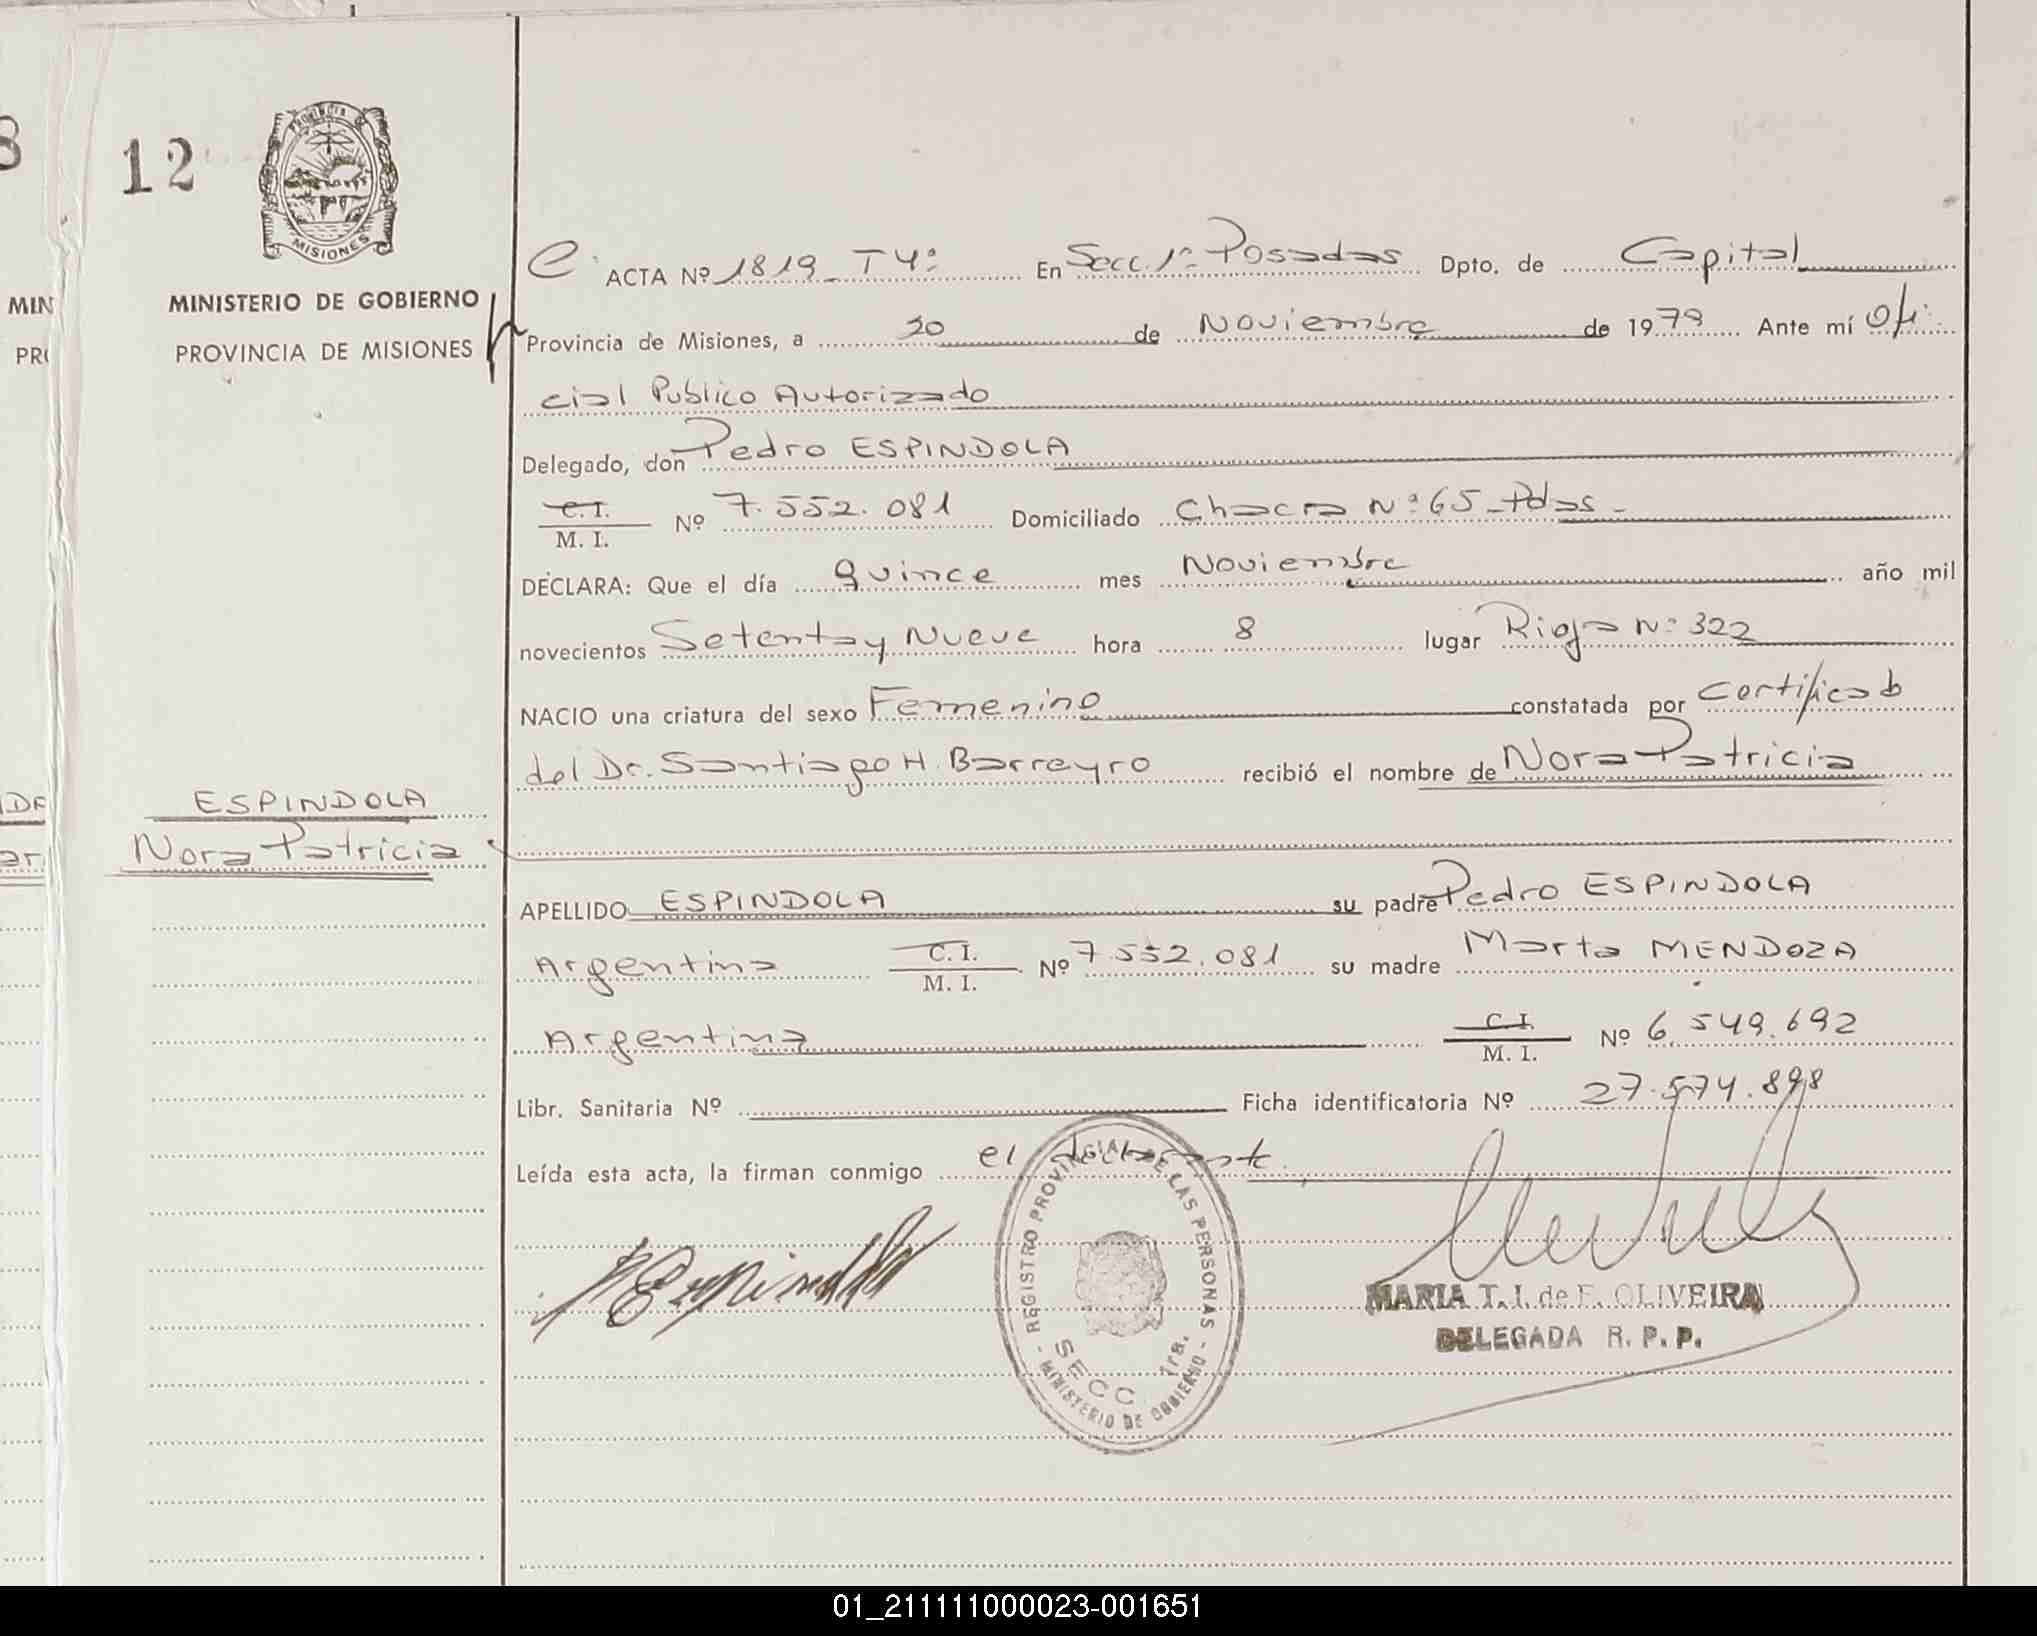 8
12
Provincia de
MISIONES
MINISTERIO DE GOBIERNO
PROVINCIA DE MISIONES
MIN
PR
ACTA Nº 1819 T4º En Secc. 1ª Posadas Dpto. de Capital
Provincia de Misiones, a 20 de Noviembre de 1979 Ante mí Ofi
cial Publico Autorizado
Delegado, don Pedro ESPINDOLA
C. I.
M. I. Nº 7.552.081 Domiciliado Chacra Nº 65 - Pdas -
DECLARA: Que el día quince mes Noviembre año mil
novecientos Setenta y Nueve hora 8 lugar Rioja Nº 322
NACIO una criatura del sexo Femenino constatada por Certificado
del Dr. Santiago H. Barreyro recibió el nombre de Nora Patricia
ESPINDOLA
Nora Patricia
APELLIDO ESPINDOLA su padre Pedro ESPINDOLA
Argentina C. I.
M. I. Nº 7.552.081 su madre Marta MENDOZA
Argentina C. I.
M. I. Nº 6.549.692
Libr. Sanitaria Nº Ficha identificatoria Nº 27.574.898
Leída esta acta, la firman conmigo el declarante.
REGISTRO PROVINCIAL DE LAS PERSONAS
SECC 1ra.
MINISTERIO DE GOBIERNO
MARIA T. I. de F. OLIVEIRA
DELEGADA R. P. P.
01_211111000023-001651